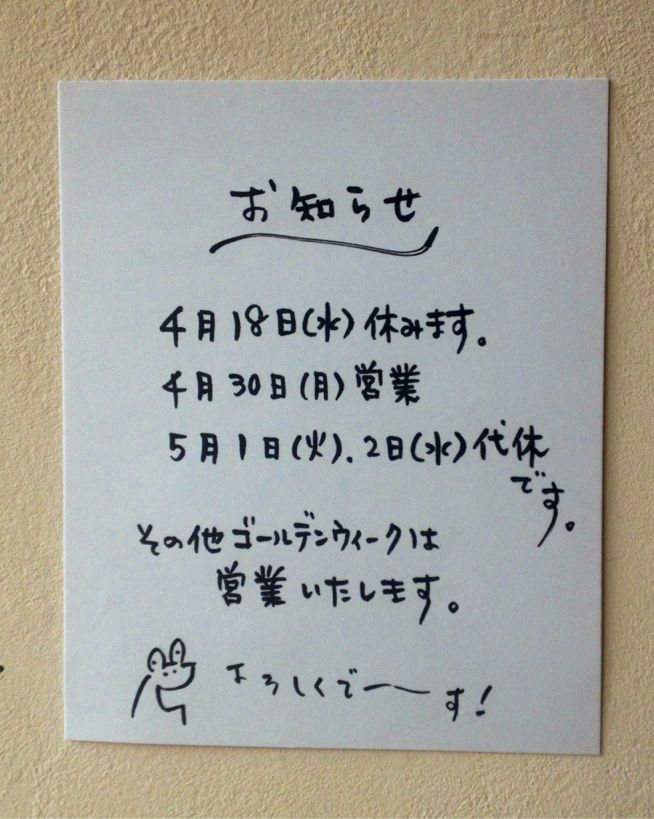 お知らせ
4月18日(水)休みます。
4月30日(月)営業
5月1日(火).2日(水)代休
です。
その他ゴールデンウィークは
営業いたします。
よろしくでーす!